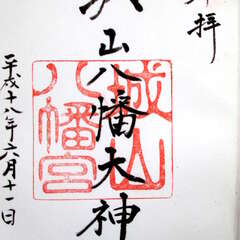 拝
山八幡天神
城山
八幡宮
平成十八年六月十一日